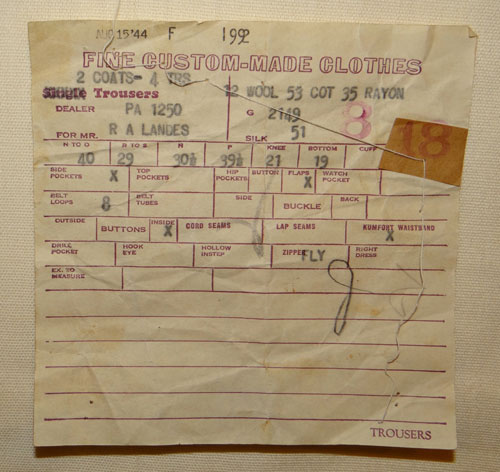 AUG 15 '44 F 1992
FINE CUSTOM-MADE CLOTHES
2 COATS- 4 TRS
Trousers 12 WOOL 53 COT 35 RAYON
DEALER PA 1250 G 2149
3 18
FOR MR. R A LANDES SILK 51
N TO O B TO S R P KNEE BOTTOM CUFF
40 29 30½ 39½ 21 19
SIDE POCKETS X TOP POCKETS HIP POCKETS BUTTON FLAPS X WATCH POCKET
BELT LOOPS 8 BELT TUBES SIDE BUCKLE BACK
OUTSIDE BUTTONS INSIDE X CORD SEAMS LAP SEAMS KUMFORT WAISTBAND X
DRILL POCKET HOOK EYE HOLLOW INSTEP ZIPPER FLY RIGHT DRESS
EX. TO MEASURE
TROUSERS